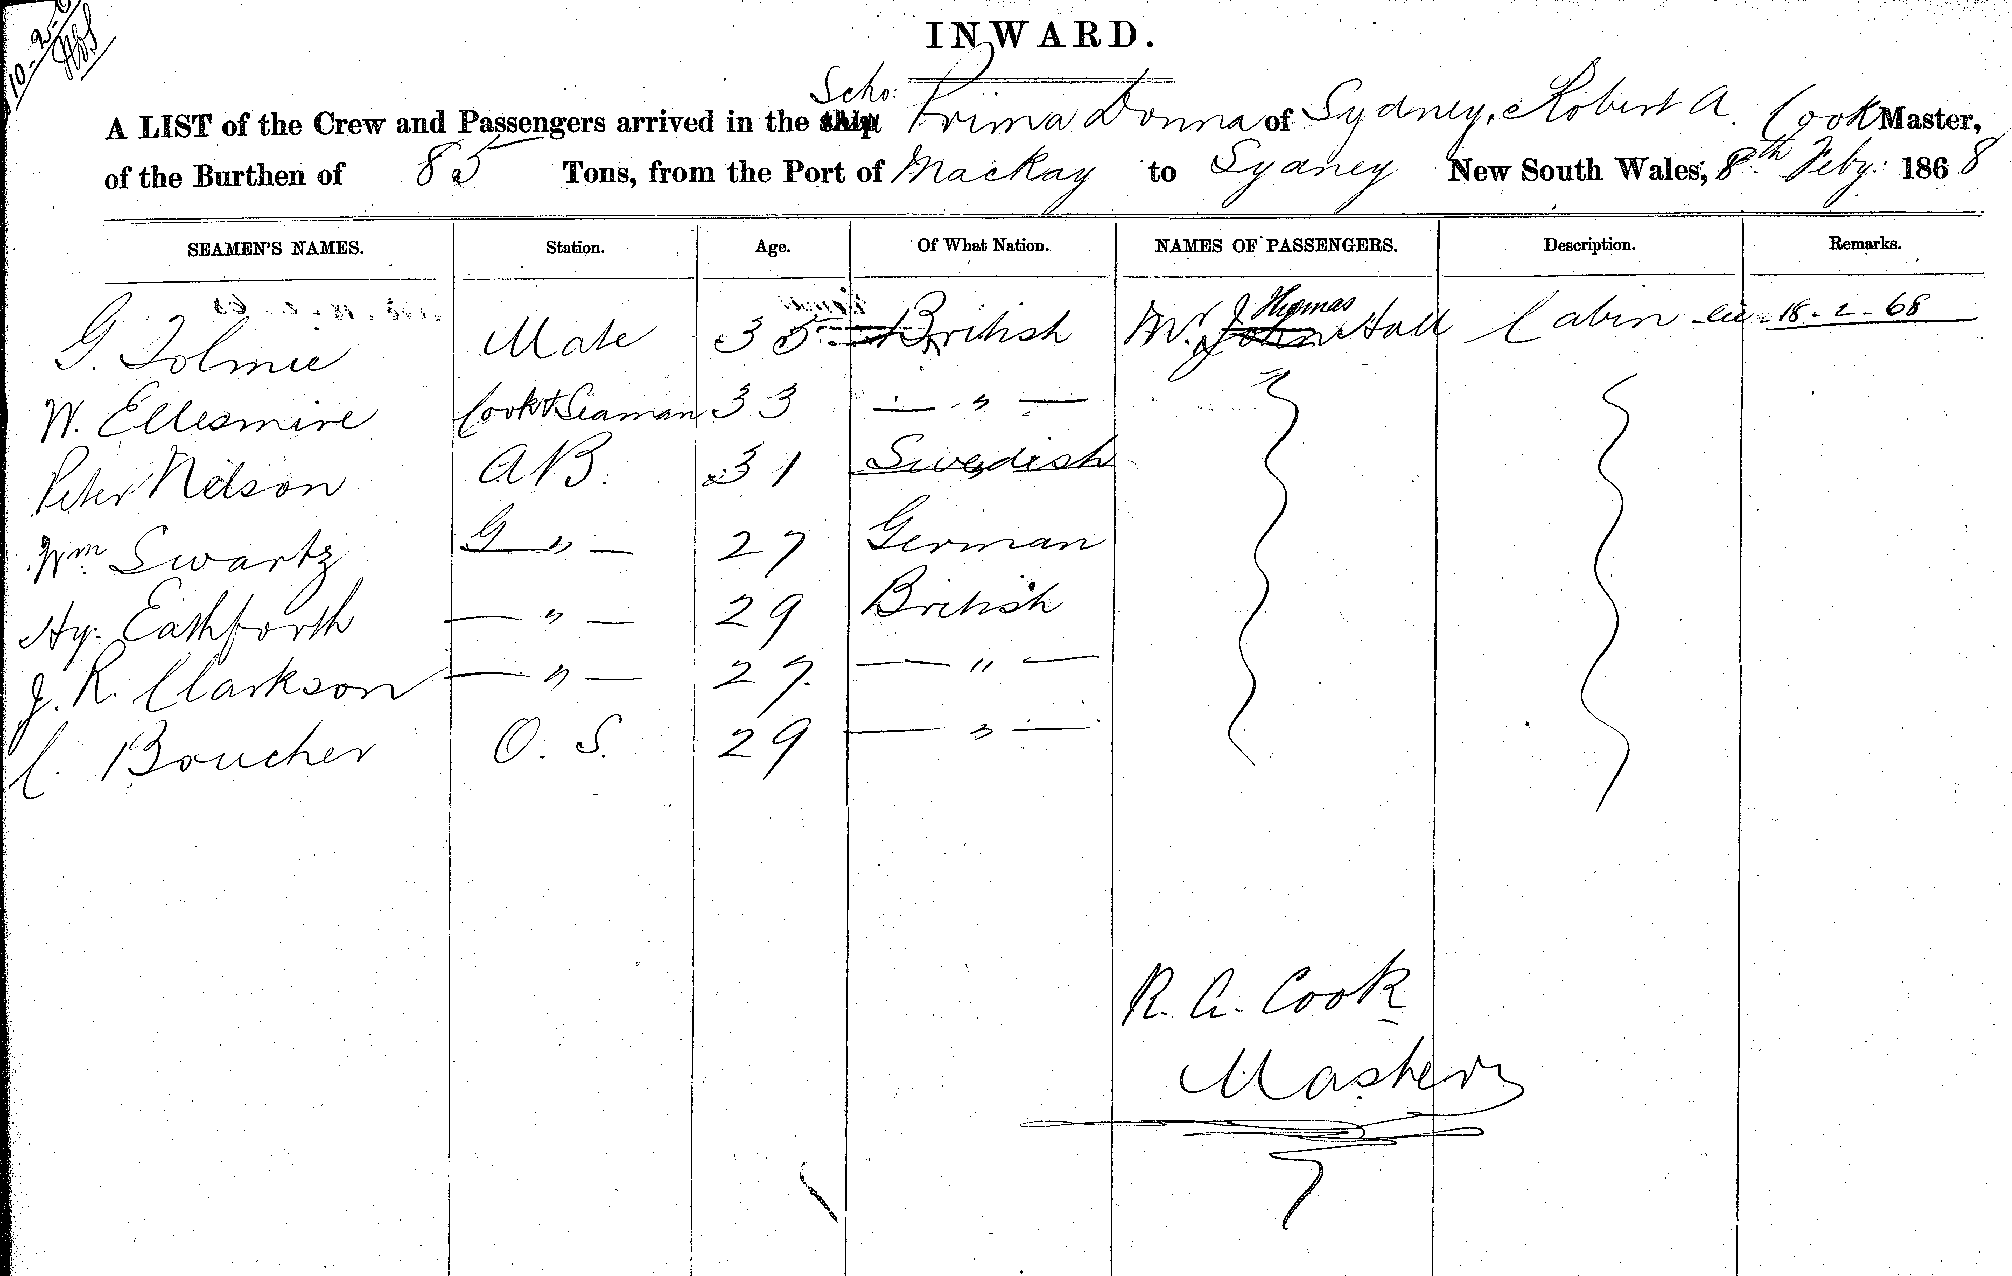 INWARD.
Scho:
A LIST of the Crew and Passengers arrived in the Ship Prima Donna of Sydney, Robert A. Cook Master,
of the Burthen of 85 Tons, from the Port of Mackay to Sydney New South Wales, 8th Feby. 1868
SEAMEN'S NAMES. Station. Age. Of What Nation. NAMES OF PASSENGERS. Description. Remarks.
Thomas
G. Tolmie Mate 35 British Mr. J. John Hall Cabin 18-2-68
W. Ellesmire Cook & Seaman 33 — " —
Peter Nelson AB. 31 Swedish
Wm. Swartz — " — 27 German
Hy. Eathforth — " — 29 British
J. R. Clarkson — " — 27. — " —
C. Boucher O. S. 29 — " —
R. A. Cook
Master